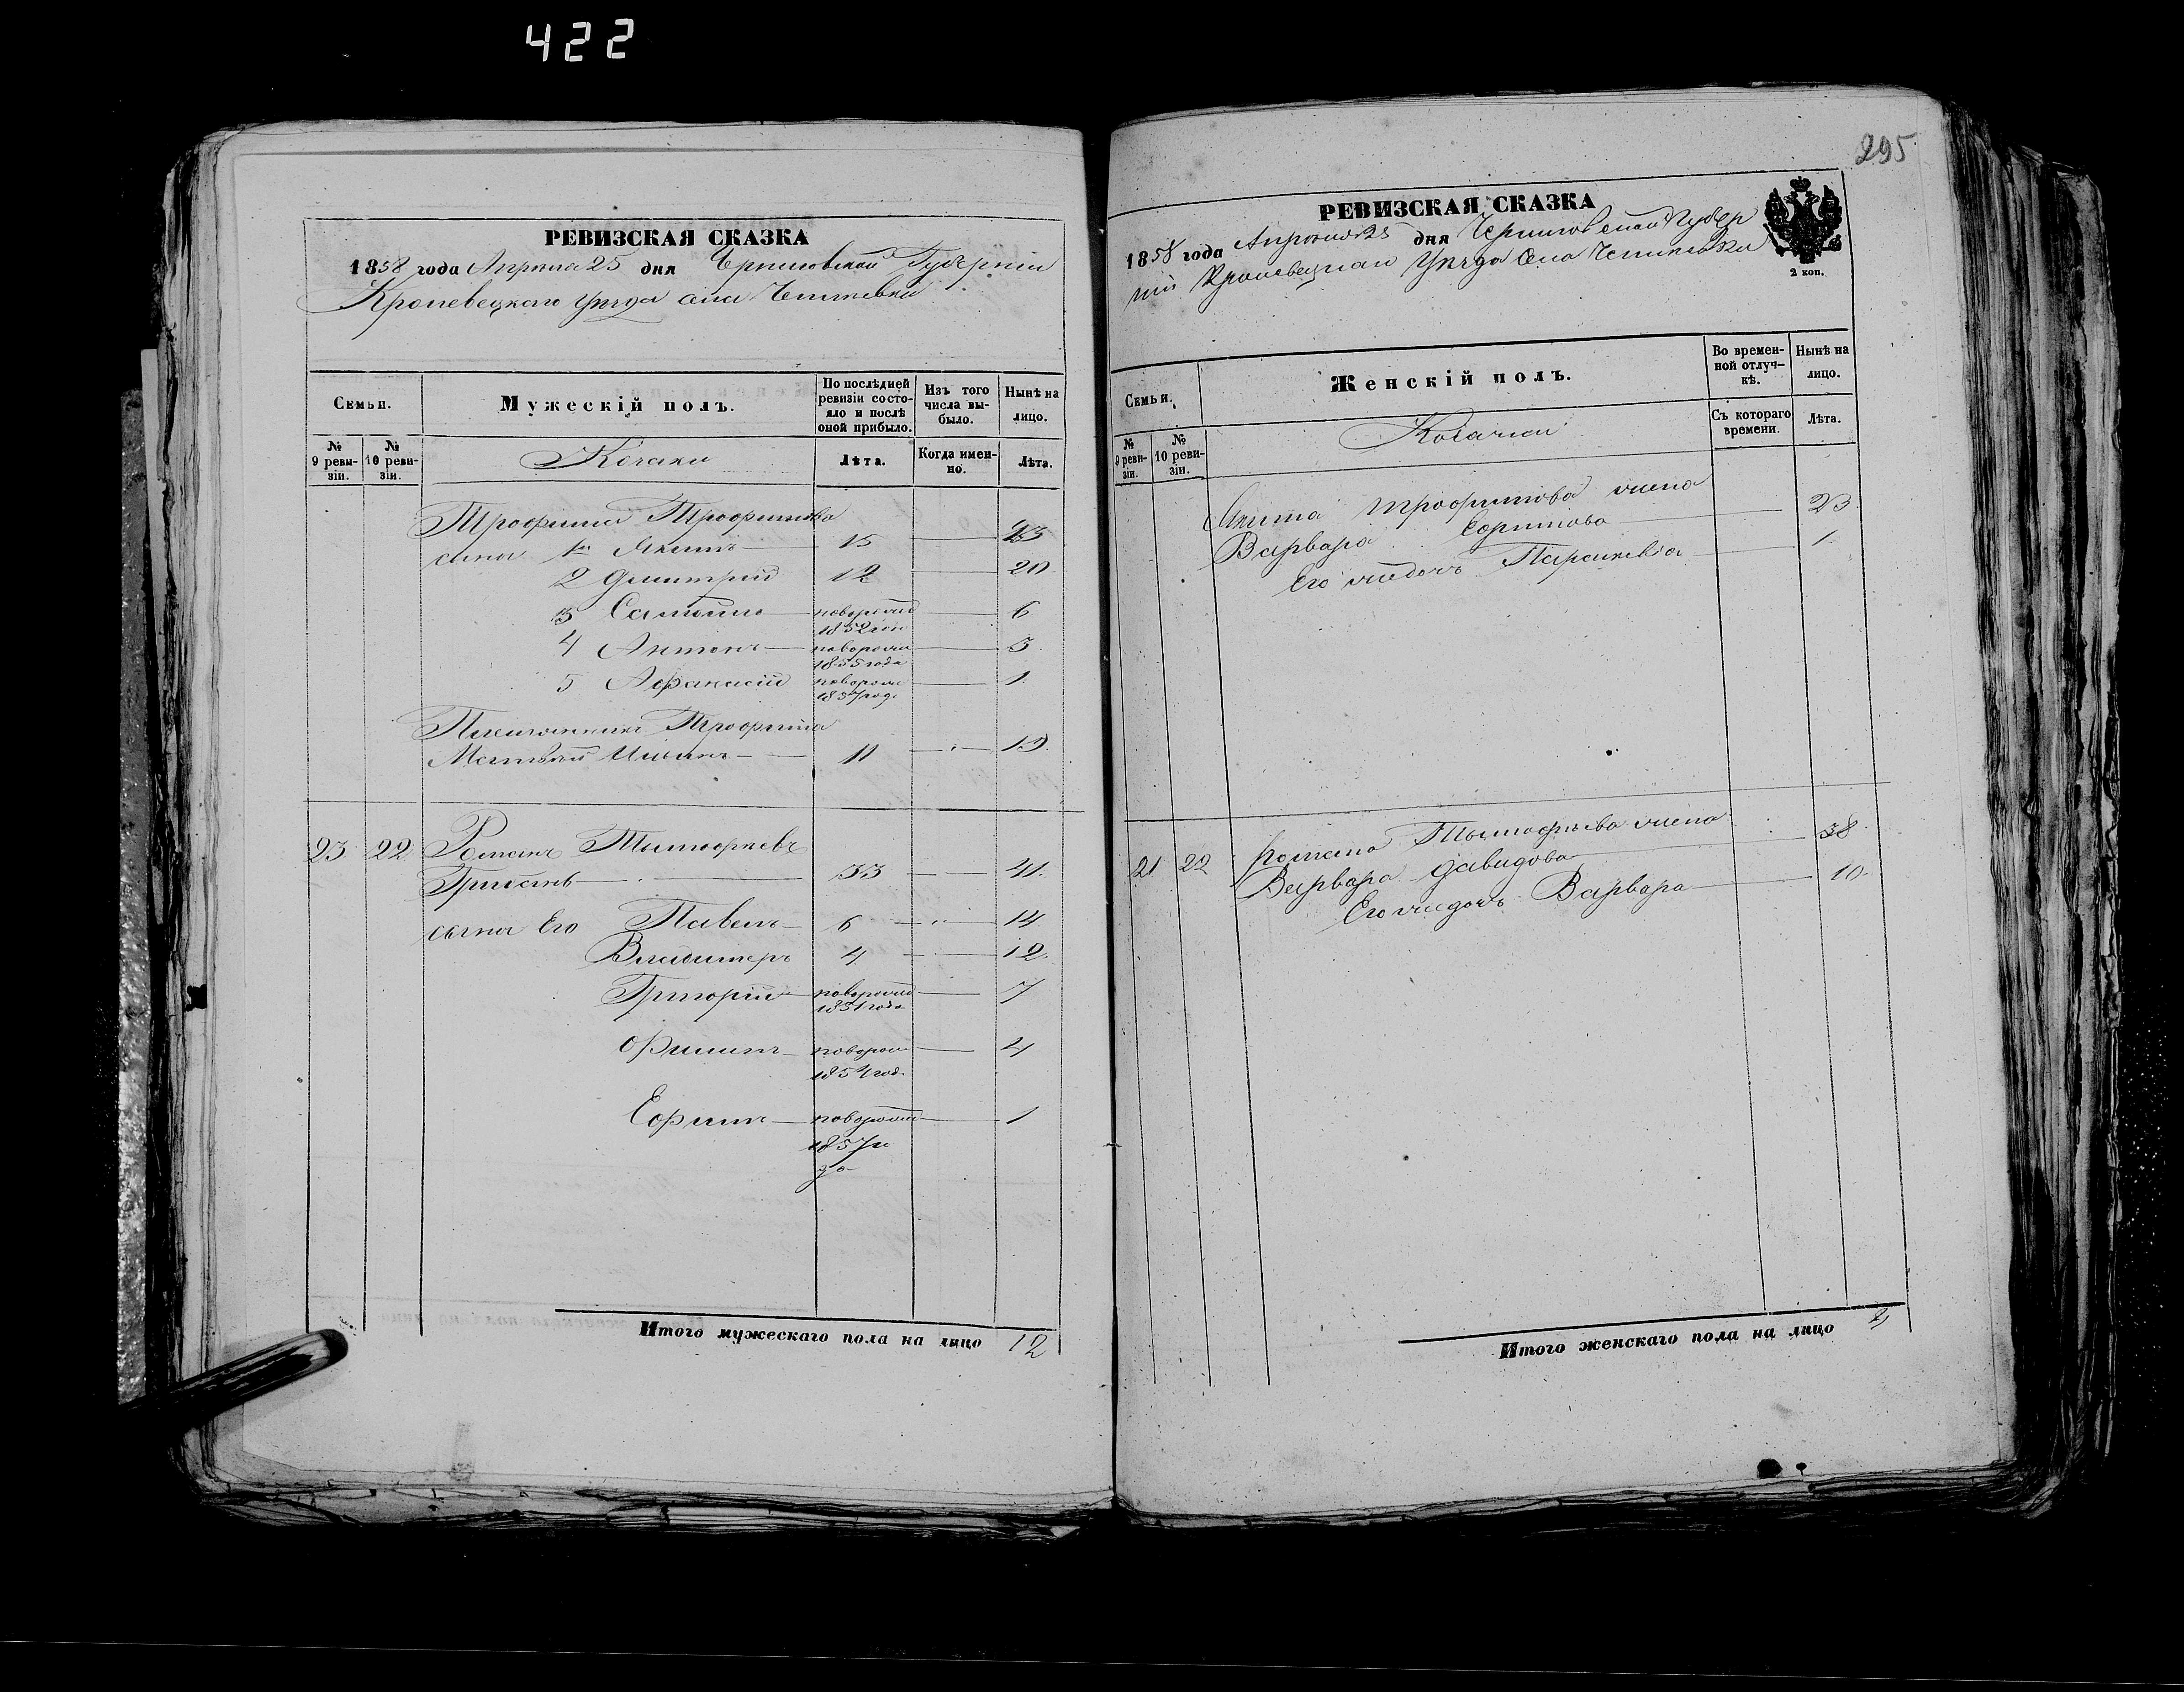 422
РЕВИЗСКАЯ СКАЗКА
1858 года Апреля 25 дня Черниговской Губерніи
Кролевецкаго уезда села
Семьи.
Мужескій полъ.
По послѣдней ревизіи состояло и послѣ оной прибыло.
Изъ того числа выбыло.
Нынѣ на лицо.
№ 9 ревизіи.
№ 10 ревизіи.
Козаки
Лѣта.
Когда именно.
Лѣта.
Трофима Трофимова
сина 1й Якимъ 15 23
2 Дмитрій 12 20
3 новорожд 1852 год 6
4 Антонъ новорожд 1855 года 3
5 Афанасій новорож 1857 год 1
Племянникъ Трофима
Матвей 11 19
23 22 Романъ Тимофеевъ
33 41
сына Его Павелъ 6 14
Владимеръ 4 12
Григорій новорожд 1851 года 7
Филипъ новорож 1854 год 4
Ефимъ новорожд 1857 го
да 1
Итого мужескаго пола на лицо 12
295
РЕВИЗСКАЯ СКАЗКА
1858 года Апреля 25 дня Черниговской Губер
ніи Кролевецкаго уезда села
2 коп.
Семьи.
Женскій полъ.
Во временной отлучкѣ.
Нынѣ на лицо.
№ 9 ревизіи.
№ 10 ревизіи.
Козачки
Съ котораго времени.
Лѣта.
Якима Трофимова жена
Варвара Ефимова 23
Его дочъ Параскевіа 1
21 22 Романа Тимофеева жена
Варвара Давидова 38
Его дочъ Варвара 10
Итого женскаго пола на лицо 4